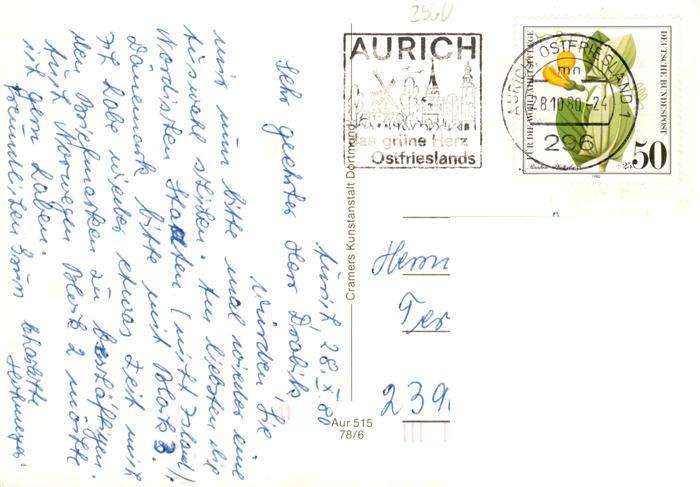 2960
AURICH
Das grüne Herz
Ostfrieslands
AURICH, OSTFRIESLAND 1
mn
28.10.80-24
2960
FÜR DIE WOHLFAHRTSPFLEGE
DEUTSCHE BUNDESPOST
+25
50
1980
Aurich, 28. X. 80
Sehr geehrter Herr Drabik,
würden Sie
mir nun bitte mal wieder eine
Auswahl senden. Am liebsten die
Nordischen Staaten (nicht Island),
Dänemark bitte mit Block 3.
Ich habe wieder etwas Zeit mich
den Briefmarken zu beschäftigen.
Auch Norwegen Block 2 möchte
ich gern haben.
Freundlichen Gruß
Herrn
239
Cramers Kunstanstalt Dortmund
Aur 515
78/6